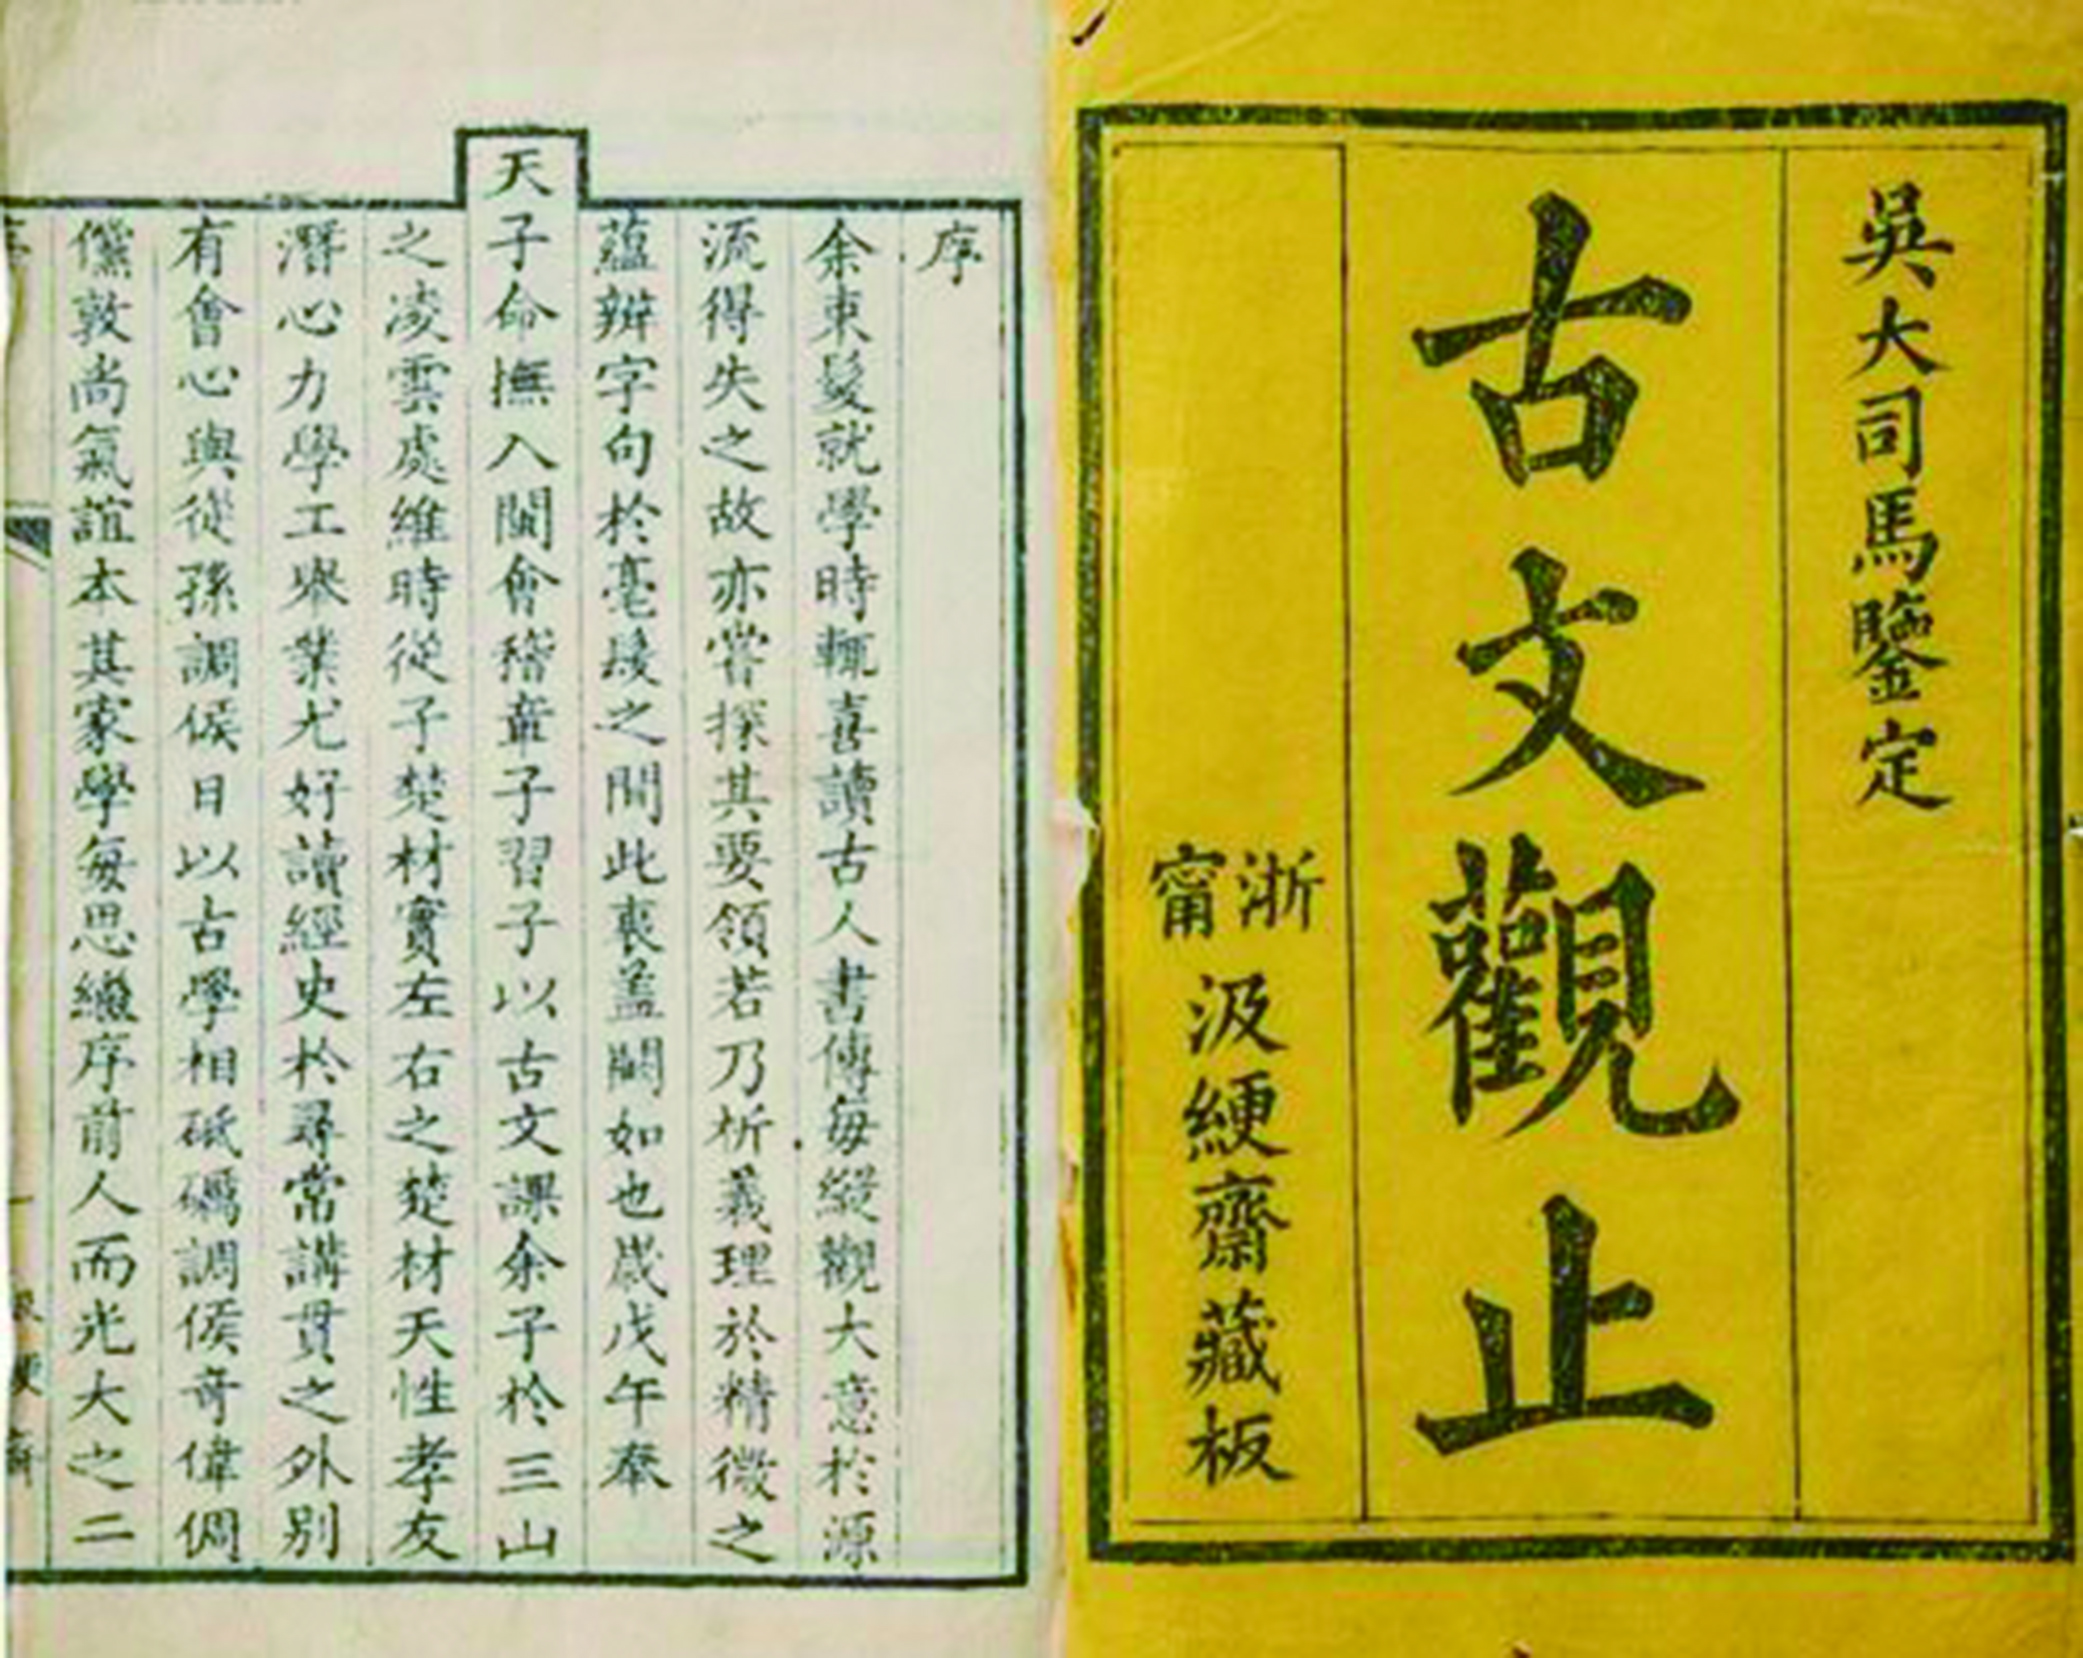 吳大司馬鑒定
古文觀止
浙甯汲綆齋藏板
序
余束髮就學時輒喜讀古人書傳每縱觀大意於源
流得失之故亦嘗探其要領若乃析義理於精微之
蘊辨字句於毫髮之間此衷蓋闕如也歲戊午奉
天子命撫八閩會稽章子習子以古文課余子於三山
之凌雲處維時從子楚材實左右之楚材天性孝友
潛心力學工舉業尤好讀經史於尋常講貫之外別
有會心與從孫調侯日以古學相砥礪調侯奇偉倜
儻敦尚氣誼本其家學每思繼序前人而光大之二